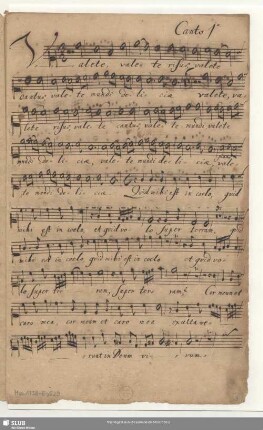 Canto 1º
Valete, valete risus, valete
cantus valete mundi deliciae valete, va-
lete risus valete cantus valete mundi valete
mundi deliciae, valete mundi deliciae, vale-
te mundi deliciae. Quid mihi est in coelo, quid
mihi est in coelo, et quid volo super terram, quid
mihi est in coelo quid mihi est in coelo et quid vo-
lo super terram, super terram? Cor meum et
caro mea, cor meum et caro mea exultave-
runt in Deum vivum.
SLUB